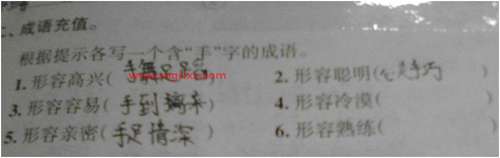 、成语充值。
根据提示各写一个含“手”字的成语。
1.形容高兴(手舞足蹈) 2.形容聪明(心灵手巧)
3.形容容易(手到擒来) 4.形容冷漠( )
5.形容亲密(手足情深) 6.形容熟练( )